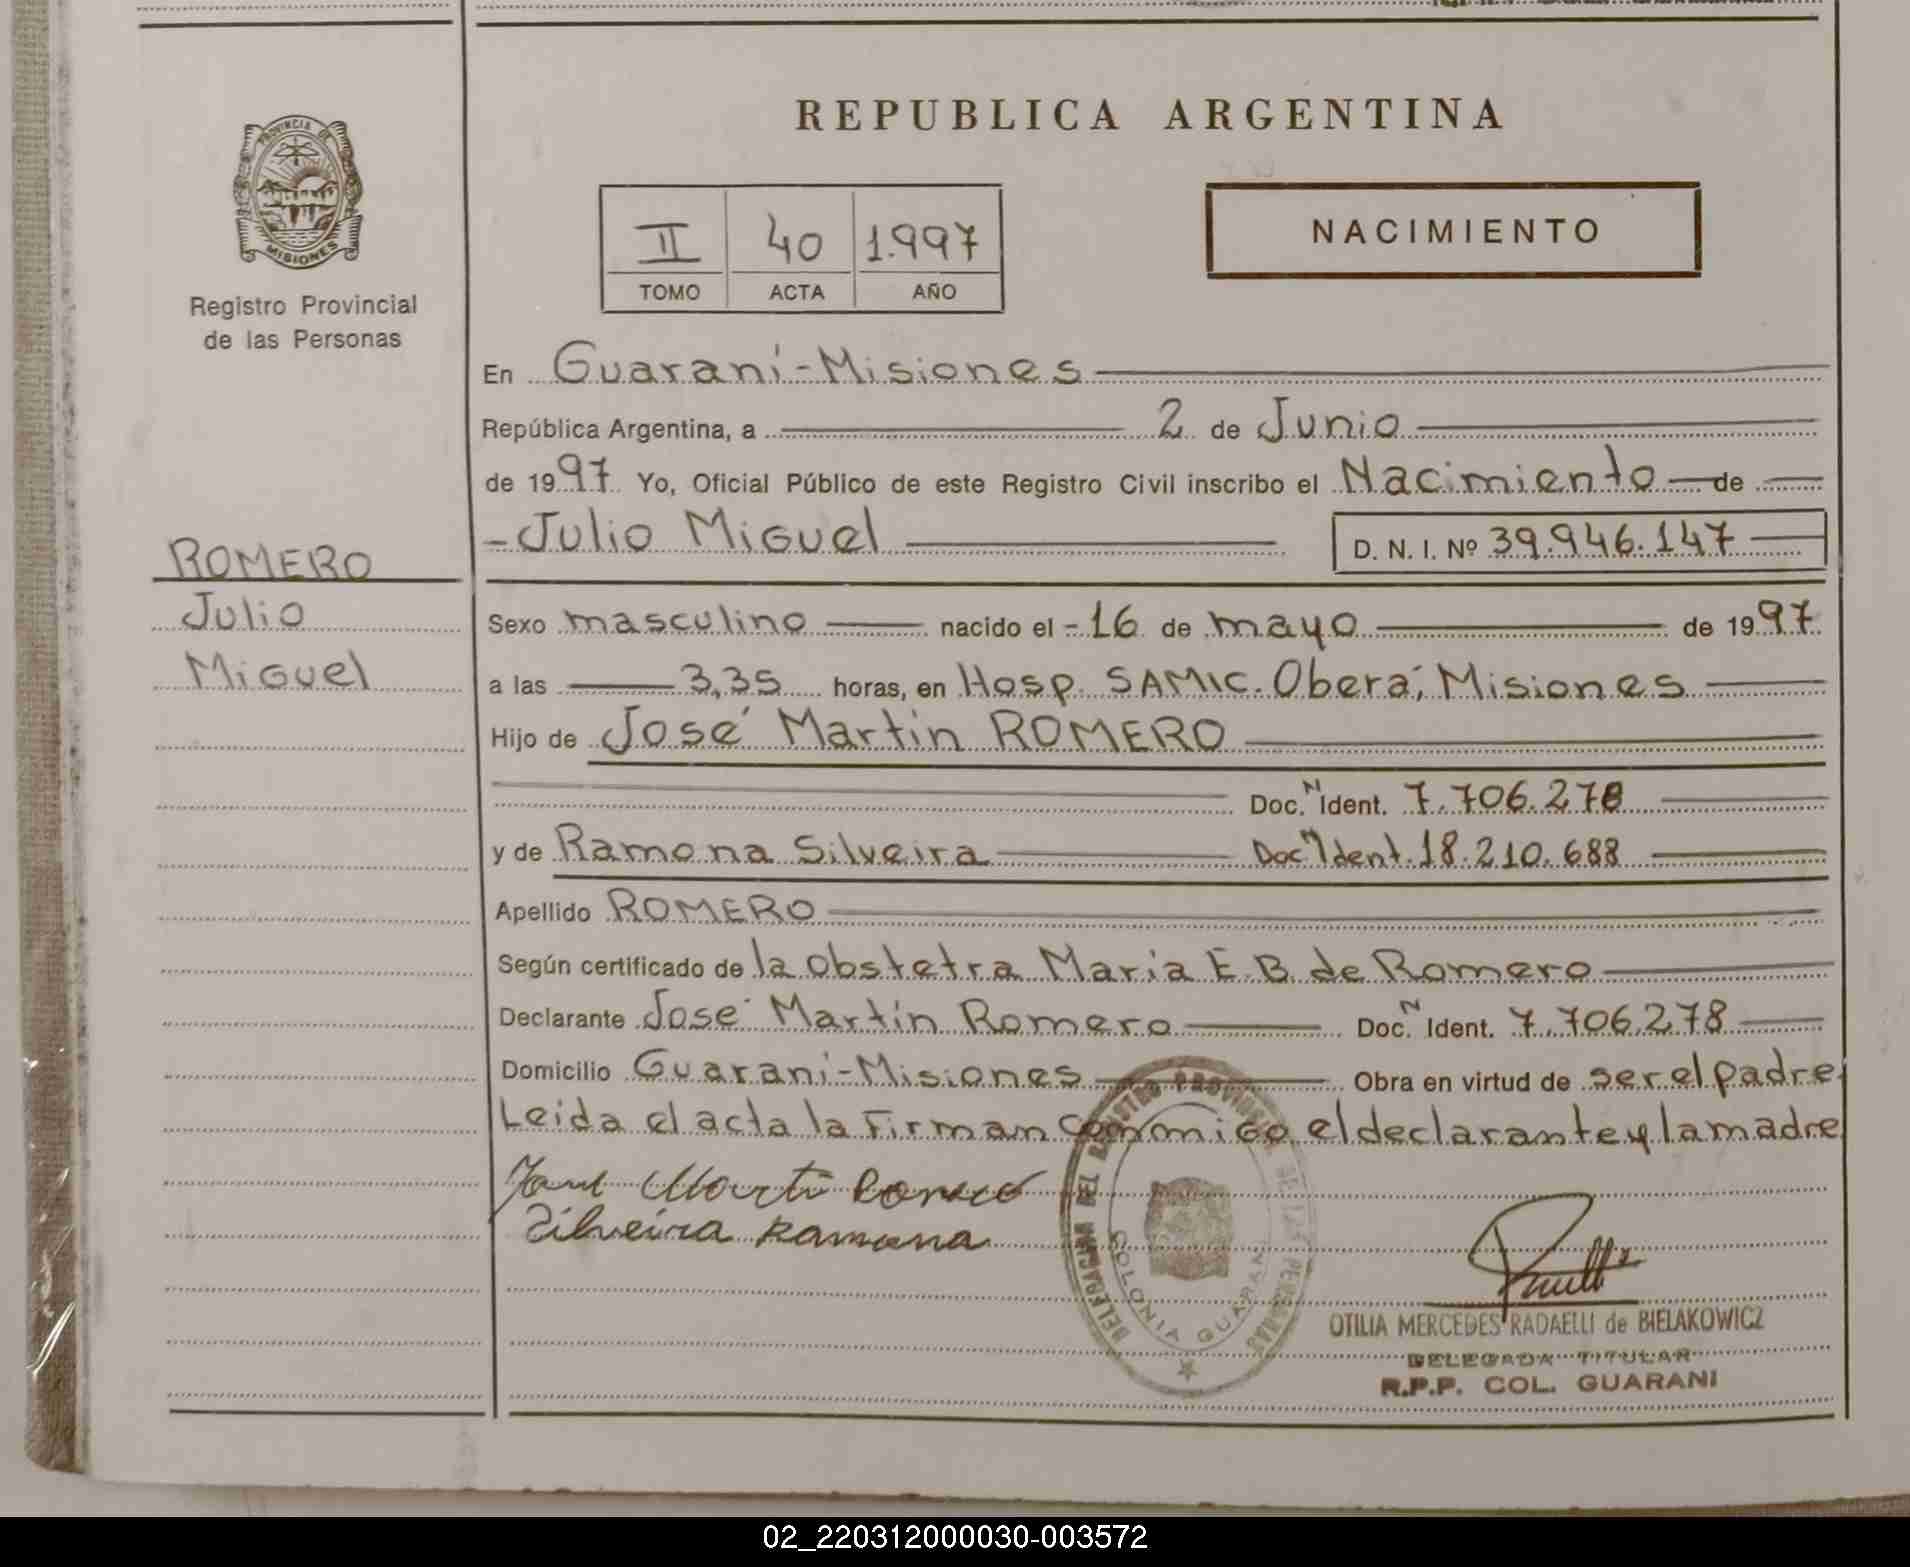 REPUBLICA ARGENTINA
PROVINCIA DE
MISIONES
Registro Provincial
de las Personas
II 40 1.997
TOMO ACTA AÑO
NACIMIENTO
En Guaraní-Misiones
República Argentina, a 2 de Junio
de 1997 Yo, Oficial Público de este Registro Civil inscribo el Nacimiento de
- Julio Miguel
D. N. I. Nº 39.946.147
ROMERO
Julio
Miguel
Sexo masculino nacido el - 16 de mayo de 1997
a las 3,35 horas, en Hosp. SAMIC. Oberá, Misiones
Hijo de José Martín ROMERO
Doc. N Ident. 7.706.278
y de Ramona Silveira Doc N Ident. 18.210.688
Apellido ROMERO
Según certificado de la obstetra María E. B. de Romero
Declarante José Martín Romero Doc. N Ident. 7.706.278
Domicilio Guaraní-Misiones Obra en virtud de ser el padre.
Leida el acta la Firman conmigo el declarante y la madre
Silveira Ramona
DELEGACION DEL REGISTRO PROVINCIAL DE LAS PERSONAS
COLONIA GUARANI
OTILIA MERCEDES RADAELLI de BIELAKOWICZ
DELEGADA TITULAR
R.P.P. COL. GUARANI
02_220312000030-003572